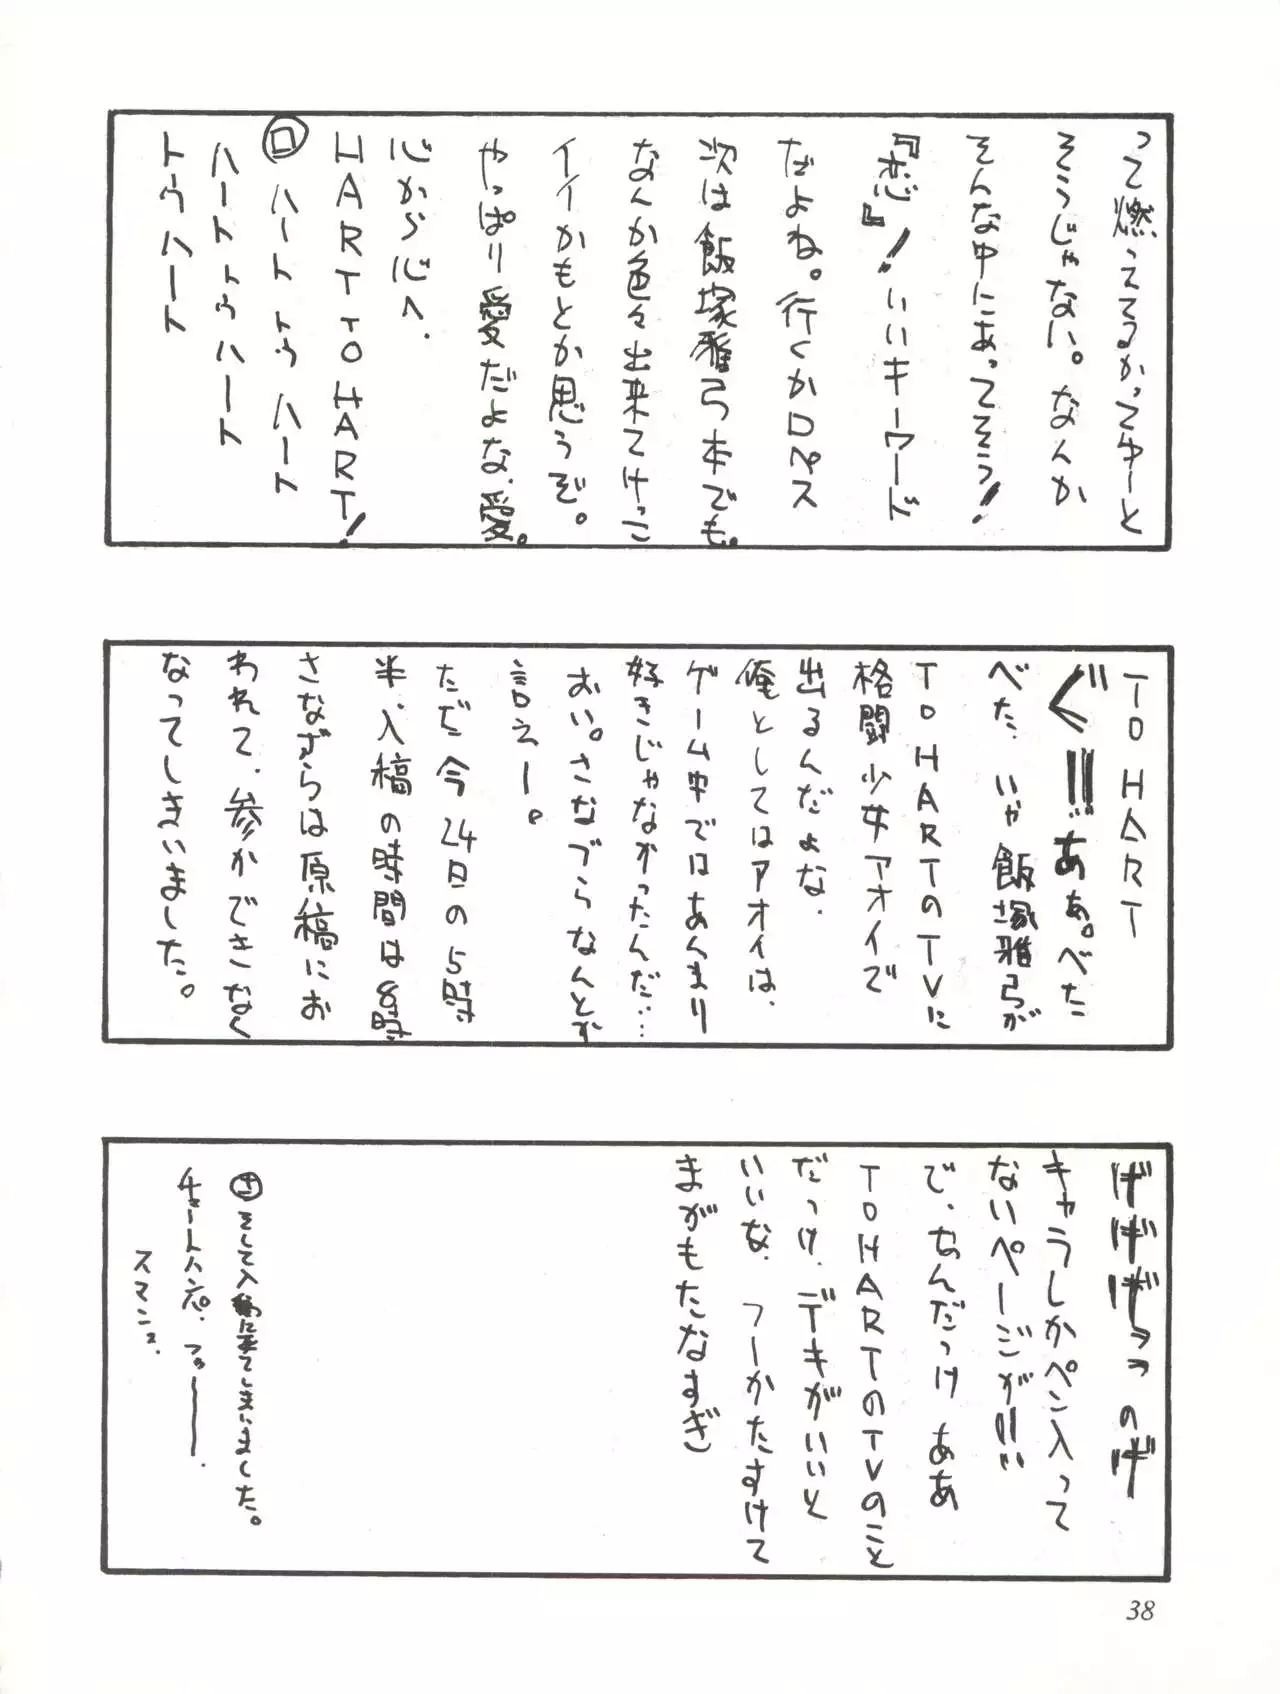 って燃えてるかってゆーと
そうじゃない。なんか
そんな中にあってそう!
『恋』!いいキーワード
だよね。行くかロペス
次は飯塚雅弓本でも。
なんか色々出来てけっこ
イイかもとか思うぞ。
やっぱり愛だよな、愛。
心から心へ、
HART TO HART!
ロ ハート トゥ ハート
ハート トゥ ハート
トゥ ハート
TO HART
ぐ!!!ああ。べた
べた、いや飯塚雅弓が
TO HARTのTVに
格闘少女アオイで
出るんだよな、
俺としてはアオイは、
ゲーム中ではあんまり
好きじゃなかったんだ…
おい。さなづらなんとか
言えー。
ただ今24日の5時
半、入稿の時間は8時
さなずらは原稿にお
われて、参かできなく
なってしまいました。
げげげっっのげ
キャラしかペン入って
ないページが!!!
で、なんだっけ ああ
TO HARTのTVのこと
だっけ、デキがいいと
いいな、つーかたすけて
まがもたなすぎ
さ そして入稿に来てしまいました。
スマンヌ、